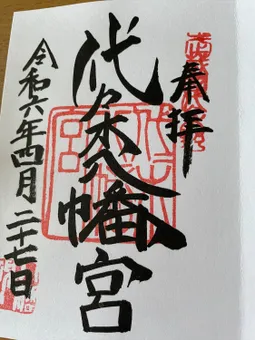 奉拝
代々木八幡宮
令和六年四月二十七日